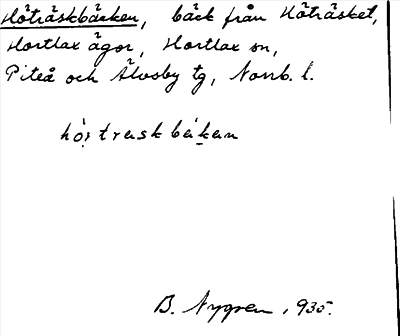 Höträskbäcken, bäck från Höträsket,
Hortlax ägor, Hortlax sn,
Piteå och Älvsby tg, Norrb. l.
hö̀ˌtraskbäkan
B. Nygren, 1935.